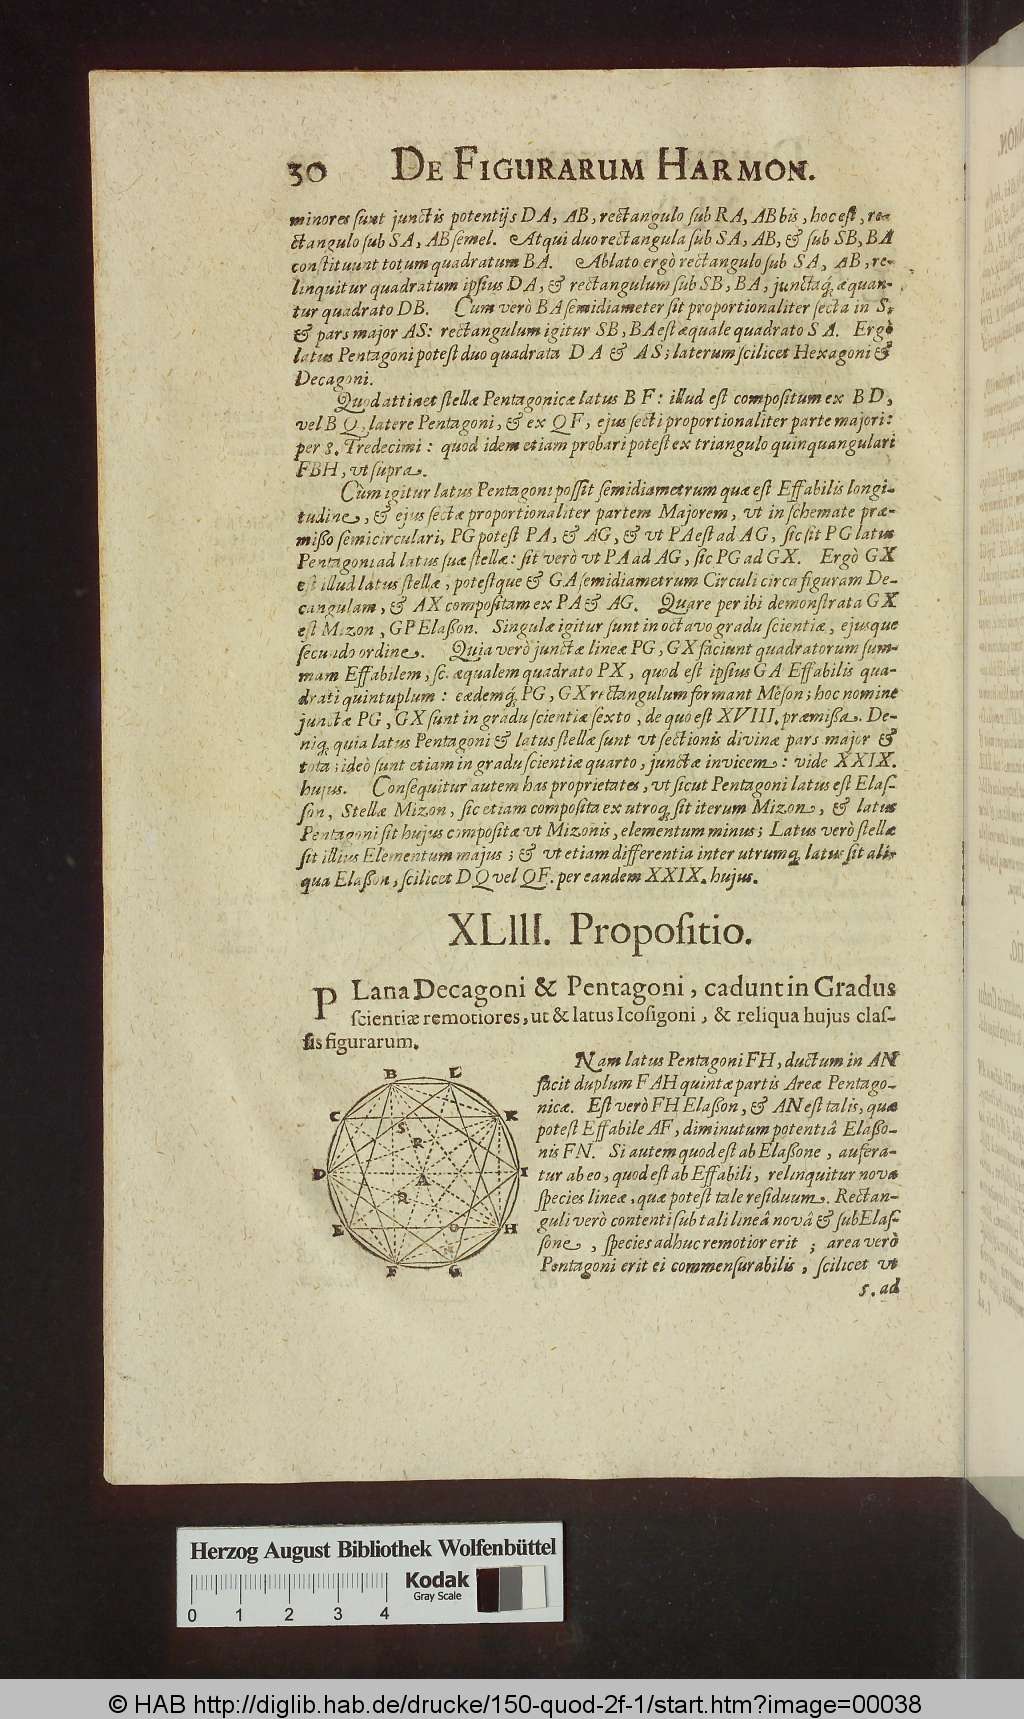 30 DE FIGURARUM HARMON.
minores sunt junctis potentijs DA, AB, rectangulo sub RA, AB bis, hoc est, re-
ctangulo sub SA, AB semel. Atqui duo rectangula sub SA, AB, & sub SB, BA
constituunt totum quadratum BA. Ablato ergò rectangulo sub SA, AB, re-
linquitur quadratum ipsius DA, & rectangulum sub SB, BA, junctaq́, æquan-
tur quadrato DB. Cum verò BA semidiameter sit proportionaliter secta in S,
& pars major AS: rectangulum igitur SB, BA est æquale quadrato SA. Ergò
latus Pentagoni potest duo quadrata DA & AS; laterum scilicet Hexagoni &
Decagoni.
Quod attinet stellæ Pentagonicæ latus BF: illud est compositum ex BD,
vel BQ, latere Pentagoni, & ex QF, ejus secti proportionaliter parte majori:
per 8. Tredecimi: quod idem etiam probari potest ex triangulo quinquangulari
FBH, vt supra.
Cùm igitur latus Pentagoni possit semidiametrum quæ est Effabilis longi-
tudine, & ejus sectæ proportionaliter partem Majorem, vt in schemate præ-
misso semicirculari, PG potest PA, & AG, & vt PA est ad AG, sic sit PG latus
Pentagoni ad latus suæ stellæ: sit verò vt PA ad AG, sic PG ad GX. Ergò GX
est illud latus stellæ, potestque & GA semidiametrum Circuli circa figuram De-
cangulam, & AX compositam ex PA & AG. Quare per ibi demonstrata GX
est Mizon, GP Elasson. Singulæ igitur sunt in octavo gradu scientiæ, ejusque
secundo ordine. Quia verò junctæ lineæ PG, GX faciunt quadratorum sum-
mam Effabilem, sc. æqualem quadrato PX, quod est ipsius GA Effabilis qua-
drati quintuplum: eædemq́, PG, GX rectangulum formant Mêson; hoc nomine
junctæ PG, GX sunt in gradu scientiæ sexto, de quo est XVIII. præmissa. De-
niq, quia latus Pentagoni & latus stellæ sunt vt sectionis divinæ pars major &
tota; ideò sunt etiam in gradu scientiæ quarto, junctæ invicem: vide XXIX.
hujus. Consequitur autem has proprietates, vt sicut Pentagoni latus est Elas-
son, Stellæ Mizon, sic etiam composita ex utroq, sit iterum Mizon, & latus
Pentagoni sit hujus compositæ vt Mizonis, elementum minus; Latus verò stellæ
sit illius Elementum majus; & vt etiam differentia inter utrumq, latus sit ali-
qua Elasson, scilicet DQ vel QF. per eandem XXIX. hujus.
XLIII. Propositio.
PLana Decagoni & Pentagoni, cadunt in Gradus
scientiæ remotiores, ut & latus Icosigoni, & reliqua hujus clas-
sis figurarum.
Nam latus Pentagoni FH, ductum in AN
facit duplum FAH quintæ partis Areæ Pentago-
nicæ. Est verò FH Elasson, & AN est talis, quæ
potest Effabile AF, diminutum potentiâ Elasso-
nis FN. Si autem quod est ab Elassone, aufera-
tur ab eo, quod est ab Effabili, relinquitur nova
species lineæ, quæ potest tale residuum. Rectan-
guli verò contenti sub tali lineâ novâ & sub Elas-
sone, species adhuc remotior erit; area verò
Pentagoni erit ei commensurabilis, scilicet vt
5. ad
B L
C K
S
R
D A I
Q
E O H
N
F G
Herzog August Bibliothek Wolfenbüttel
0 1 2 3 4
Kodak
Gray Scale
© HAB http://diglib.hab.de/drucke/150-quod-2f-1/start.htm?image=00038